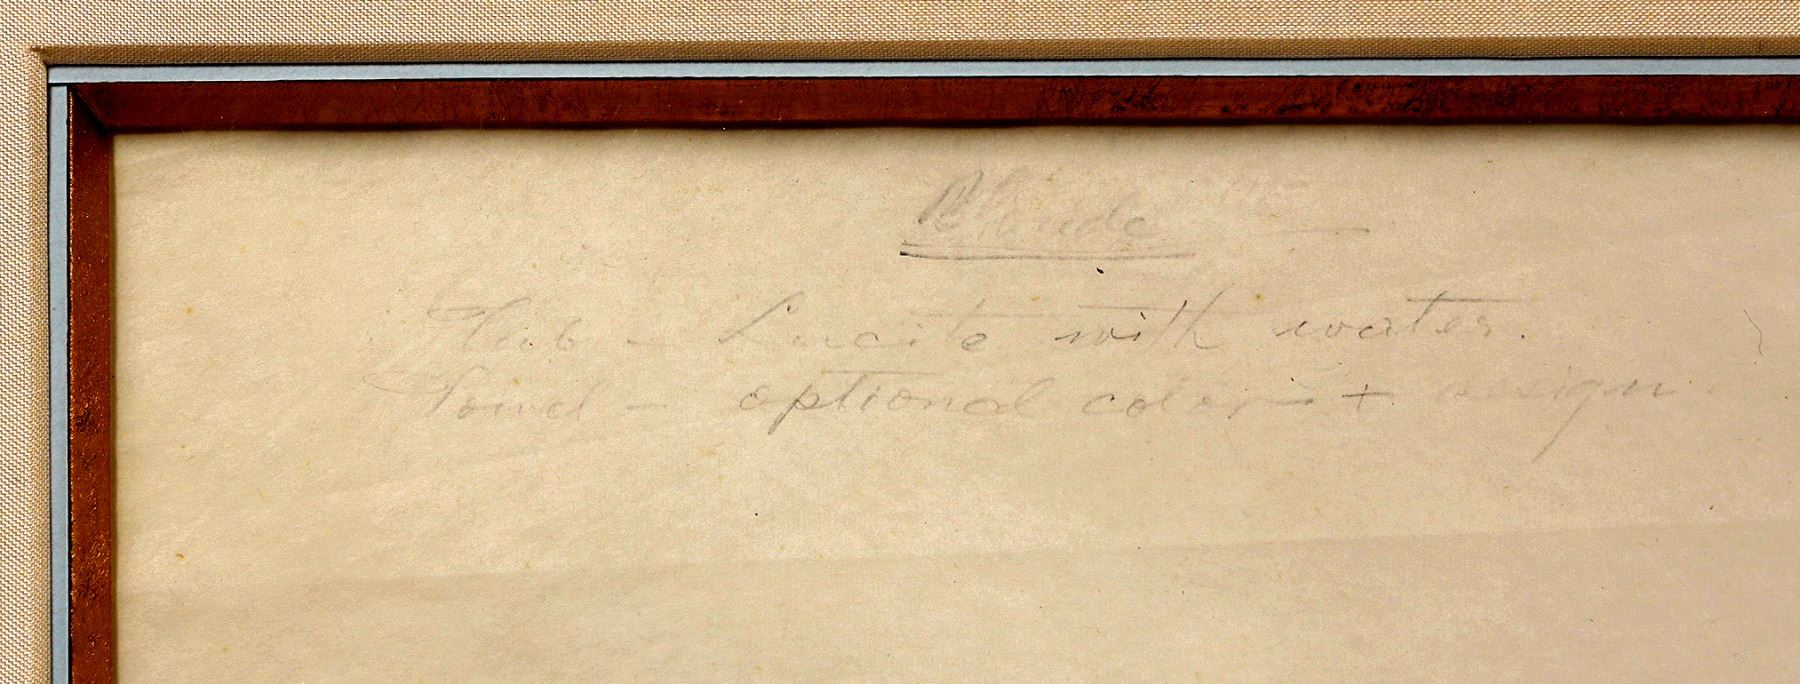 Blaude
Tub - Lucite with water.
Pond - optional colors + design.